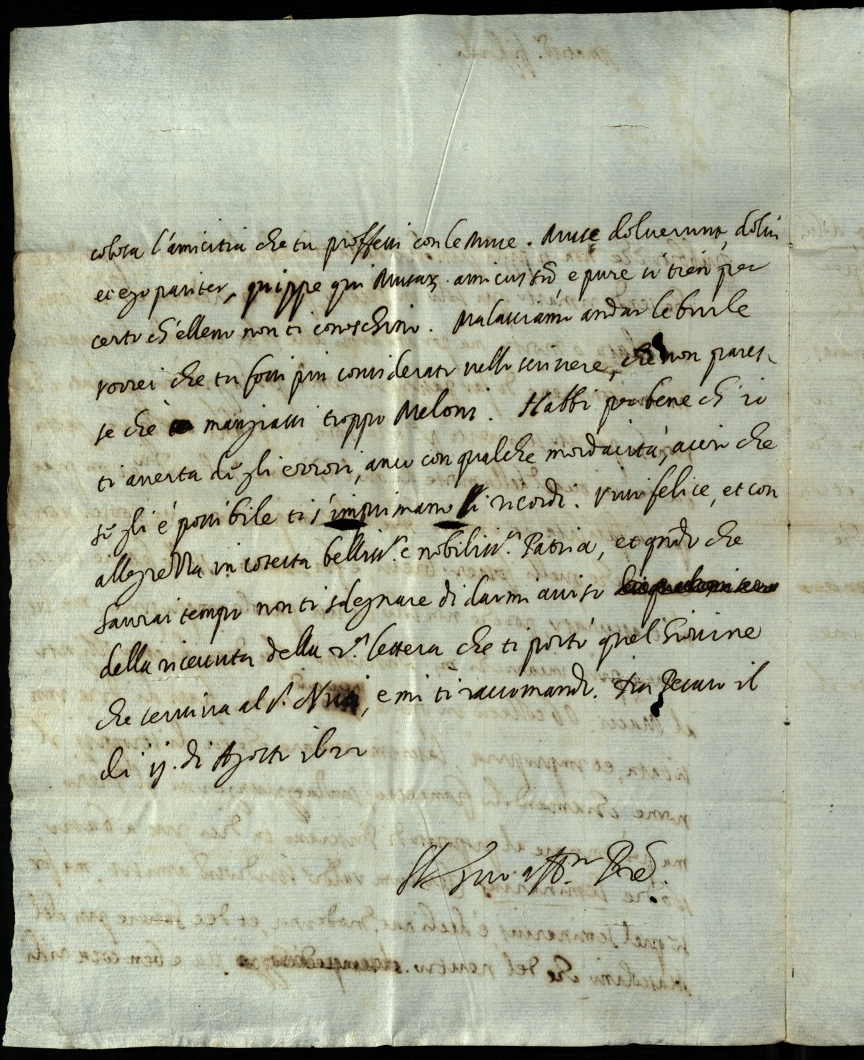 l'amicitia che tu professi con le Muse. Muse doluerunt, dolui
et ego pariter, quippe qui Musar. amicus sū, e pure ti tien per
certo ch'elleno non ti conoschino. Ma lasciamo andar le burle
vorrei che tu fossi più considerato nello scrivere, che non pares-
se che mangiassi troppo Meloni. Habbi per bene ch'io
ti averta de gli errori, anco con qualche mordacità, acciò che
se gli è possibile ti s'imprimano li ricordi. Vivi felice, et con
allegrezza in cotesta belliss.ª e nobiliss.ª Patria, et qndo che
havrai tempo non ti sdegnare di darmi aviso
della ricevuta della lettera che ti portò quel Giovine
che serviva al S.r e mi ti raccomando. Pesaro il
di ij. di Agosto
Il Tuo aff.mo